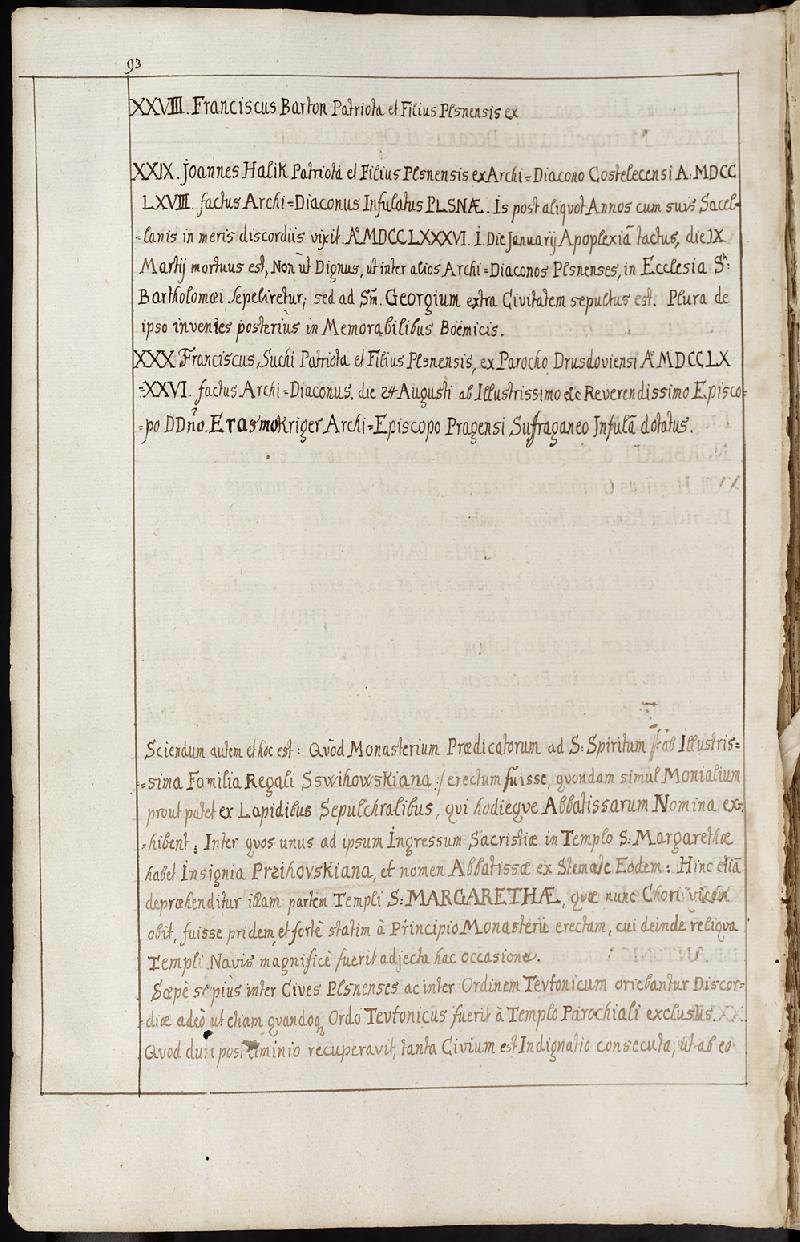 93
XXVIII. Franciscus Barton Patriota et Filius Plsnensis ex
XXIX. Joannes Halik Patriota et Filius Plsnensis ex Archi=Diacono Costelecensi A. MDCC
LXVIII. factus Archi=Diaconus Infulatus PLSNÆ. Is post aliquot Annos cum suis Sacel=
=lanis in meris discordiis vixit. Aô MDCCLXXXVI. 1. Die Januarij Apoplexiâ tactus, die IX
Martij mortuus est, Non ut Dignus, ut inter alios Archi=Diaconos Plsnenses, in Ecclesia Sti:
Bartholomæi sepeliretur; sed ad Sm. Georgium extra Civitatem sepultus est. Plura de
ipso invenies posterius in Memorabilibus Boëmicis.
XXX. Franciscus Suchi Patriota et Filius Plsnensis, ex Parocho Drusdoviensi Aô MDCCLX
=XXVI. factus Archi=Diaconus. die 24 Augusti ab Illustrissimo etc Reverendissimo Episco=
=po DDno. Erasmo Kriger Archi=Episcopo Pragensi Sufraganeo Infulâ dotatus.
Sciendum autem et hoc est: Quòd Monasterium Prædicatorum ad S: Spiritum /:ab Illustris=
=sima Familia Regali Sswihowskiana:/ erectum fuisse, quondam simul Monialium
prout patet ex Lapidibus Sepulchralibus, qui hodieque Abbatissarum Nomina ex=
=hibent. Inter quos unus ad ipsum Ingressum Sacristiæ in Templo S: Margarethæ
habet Insignia Przihovskiana, et nomen Abbatissæ ex Stemate Eodem: Hinc etiã
depræhenditur illam partem Templi S: MARGARETHÆ, quæ nunc Chori vicem
obit, fuisse pridem et fortè statim à Principio Monasterii erectam, cui deinde reliqua
Templi Navis magnificè fuerit adjecta hac occasione.
Sæpè sæpius inter Cives Plsnenses ac inter Ordinem Tevtonicum oriebantur Discor=
=diæ adeò ut etiam quandoq Ordo Tevtonicus fuerit à Templo Parochiali exclusus.
Quod dum postliminio recuperavit, tanta Civium est Indignatio consecuta, ut ab eo